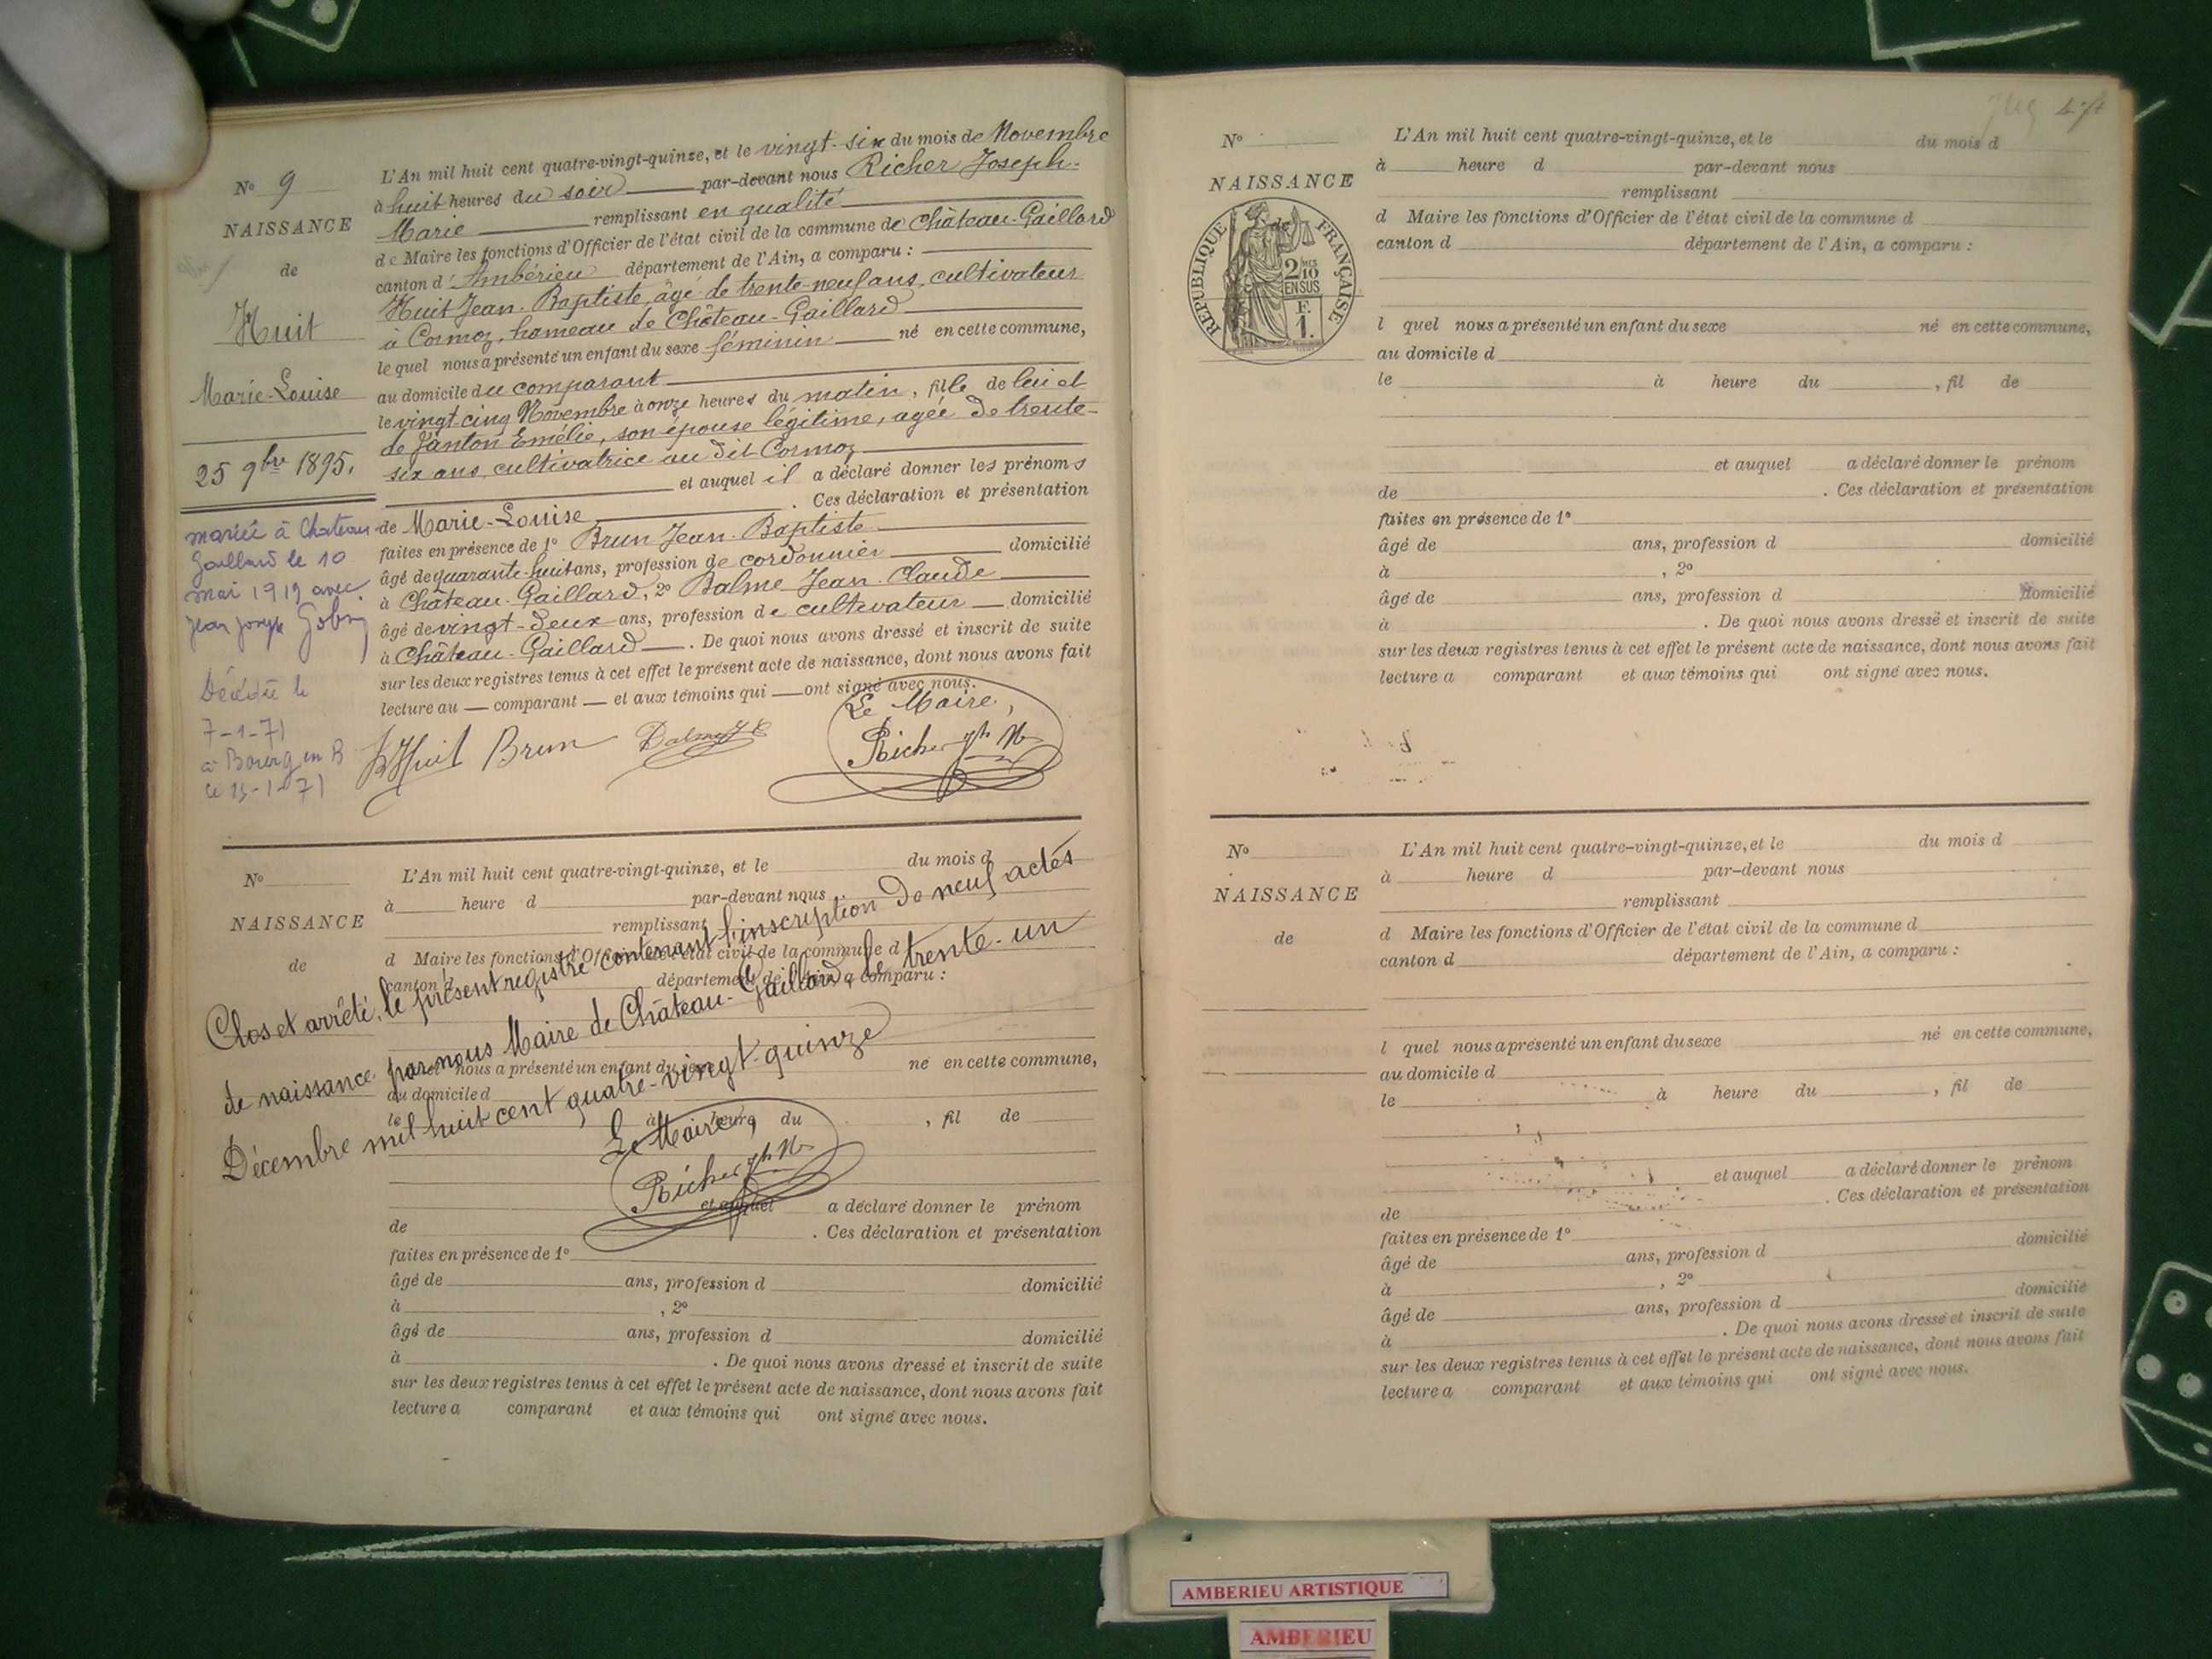 N° 9
NAISSANCE
de
Huit
Marie-Louise
25 9bre 1895.
mariée à Chateau
Gaillard le 10
mai 1919 avec
Jean Joseph
Décédée le
7-1-71
à Bourg en B
le 13-1-71
L'An mil huit cent quatre-vingt-quinze, et le vingt-six du mois de Novembre
à huit heures du soir par-devant nous Richer Joseph-
Marie remplissant en qualité
de Maire les fonctions d'Officier de l'état civil de la commune de Château-Gaillard
canton d'Ambérieu département de l'Ain, a comparu :
Huit Jean-Baptiste, âgé de trente-neuf ans, cultivateur
à Cormoz, hameau de Château-Gaillard
lequel nous a présenté un enfant du sexe féminin né en cette commune,
au domicile du comparant
le vingt cinq Novembre à onze heures du matin, fille de lui et
de Janton Emélie, son épouse légitime, agée de trente-
six ans, cultivatrice au dit Cormoz
et auquel il a déclaré donner les prénoms
de Marie-Louise . Ces déclaration et présentation
faites en présence de 1° Brun Jean-Baptiste
âgé de quarante-huit ans, profession de cordonnier domicilié
à Château-Gaillard, 2° Balme Jean-Claude
âgé de vingt-deux ans, profession de cultivateur domicilié
à Château-Gaillard . De quoi nous avons dressé et inscrit de suite
sur les deux registres tenus à cet effet le présent acte de naissance, dont nous avons fait
lecture au comparant et aux témoins qui ont signé avec nous.
Le Maire,
Huit Brun Balme J C Richer Jh M
N°
NAISSANCE
de
L'An mil huit cent quatre-vingt-quinze, et le du mois d
à heure d par-devant nous
remplissant
d Maire les fonctions d'Officier de l'état civil de la commune d
canton d département de l'Ain, a comparu :
Clos et arrêté, le présent registre contenant l'inscription de neuf actes
de naissance par nous Maire de Château-Gaillard, le trente-un
Décembre mil huit cent quatre-vingt-quinze
Le Maire,
Richer Jh M
nous a présenté un enfant du sexe né en cette commune,
au domicile d
le à heure du , fil de
et auquel a déclaré donner le prénom
de . Ces déclaration et présentation
faites en présence de 1°
âgé de ans, profession d domicilié
à , 2°
âgé de ans, profession d domicilié
à . De quoi nous avons dressé et inscrit de suite
sur les deux registres tenus à cet effet le présent acte de naissance, dont nous avons fait
lecture a comparant et aux témoins qui ont signé avec nous.
N°
NAISSANCE
RÉPUBLIQUE FRANÇAISE
2/10 MES
EN SUS
F.
1.
L'An mil huit cent quatre-vingt-quinze, et le du mois d
à heure d par-devant nous
remplissant
d Maire les fonctions d'Officier de l'état civil de la commune d
canton d département de l'Ain, a comparu :
l quel nous a présenté un enfant du sexe né en cette commune,
au domicile d
le à heure du , fil de
et auquel a déclaré donner le prénom
de . Ces déclaration et présentation
faites en présence de 1°
âgé de ans, profession d domicilié
à , 2°
âgé de ans, profession d domicilié
à . De quoi nous avons dressé et inscrit de suite
sur les deux registres tenus à cet effet le présent acte de naissance, dont nous avons fait
lecture a comparant et aux témoins qui ont signé avec nous.
N°
NAISSANCE
de
L'An mil huit cent quatre-vingt-quinze, et le du mois d
à heure d par-devant nous
remplissant
d Maire les fonctions d'Officier de l'état civil de la commune d
canton d département de l'Ain, a comparu :
l quel nous a présenté un enfant du sexe né en cette commune,
au domicile d
le à heure du , fil de
et auquel a déclaré donner le prénom
de . Ces déclaration et présentation
faites en présence de 1°
âgé de ans, profession d domicilié
à , 2°
âgé de ans, profession d domicilié
à . De quoi nous avons dressé et inscrit de suite
sur les deux registres tenus à cet effet le présent acte de naissance, dont nous avons fait
lecture a comparant et aux témoins qui ont signé avec nous.
AMBERIEU ARTISTIQUE
AMBERIEU